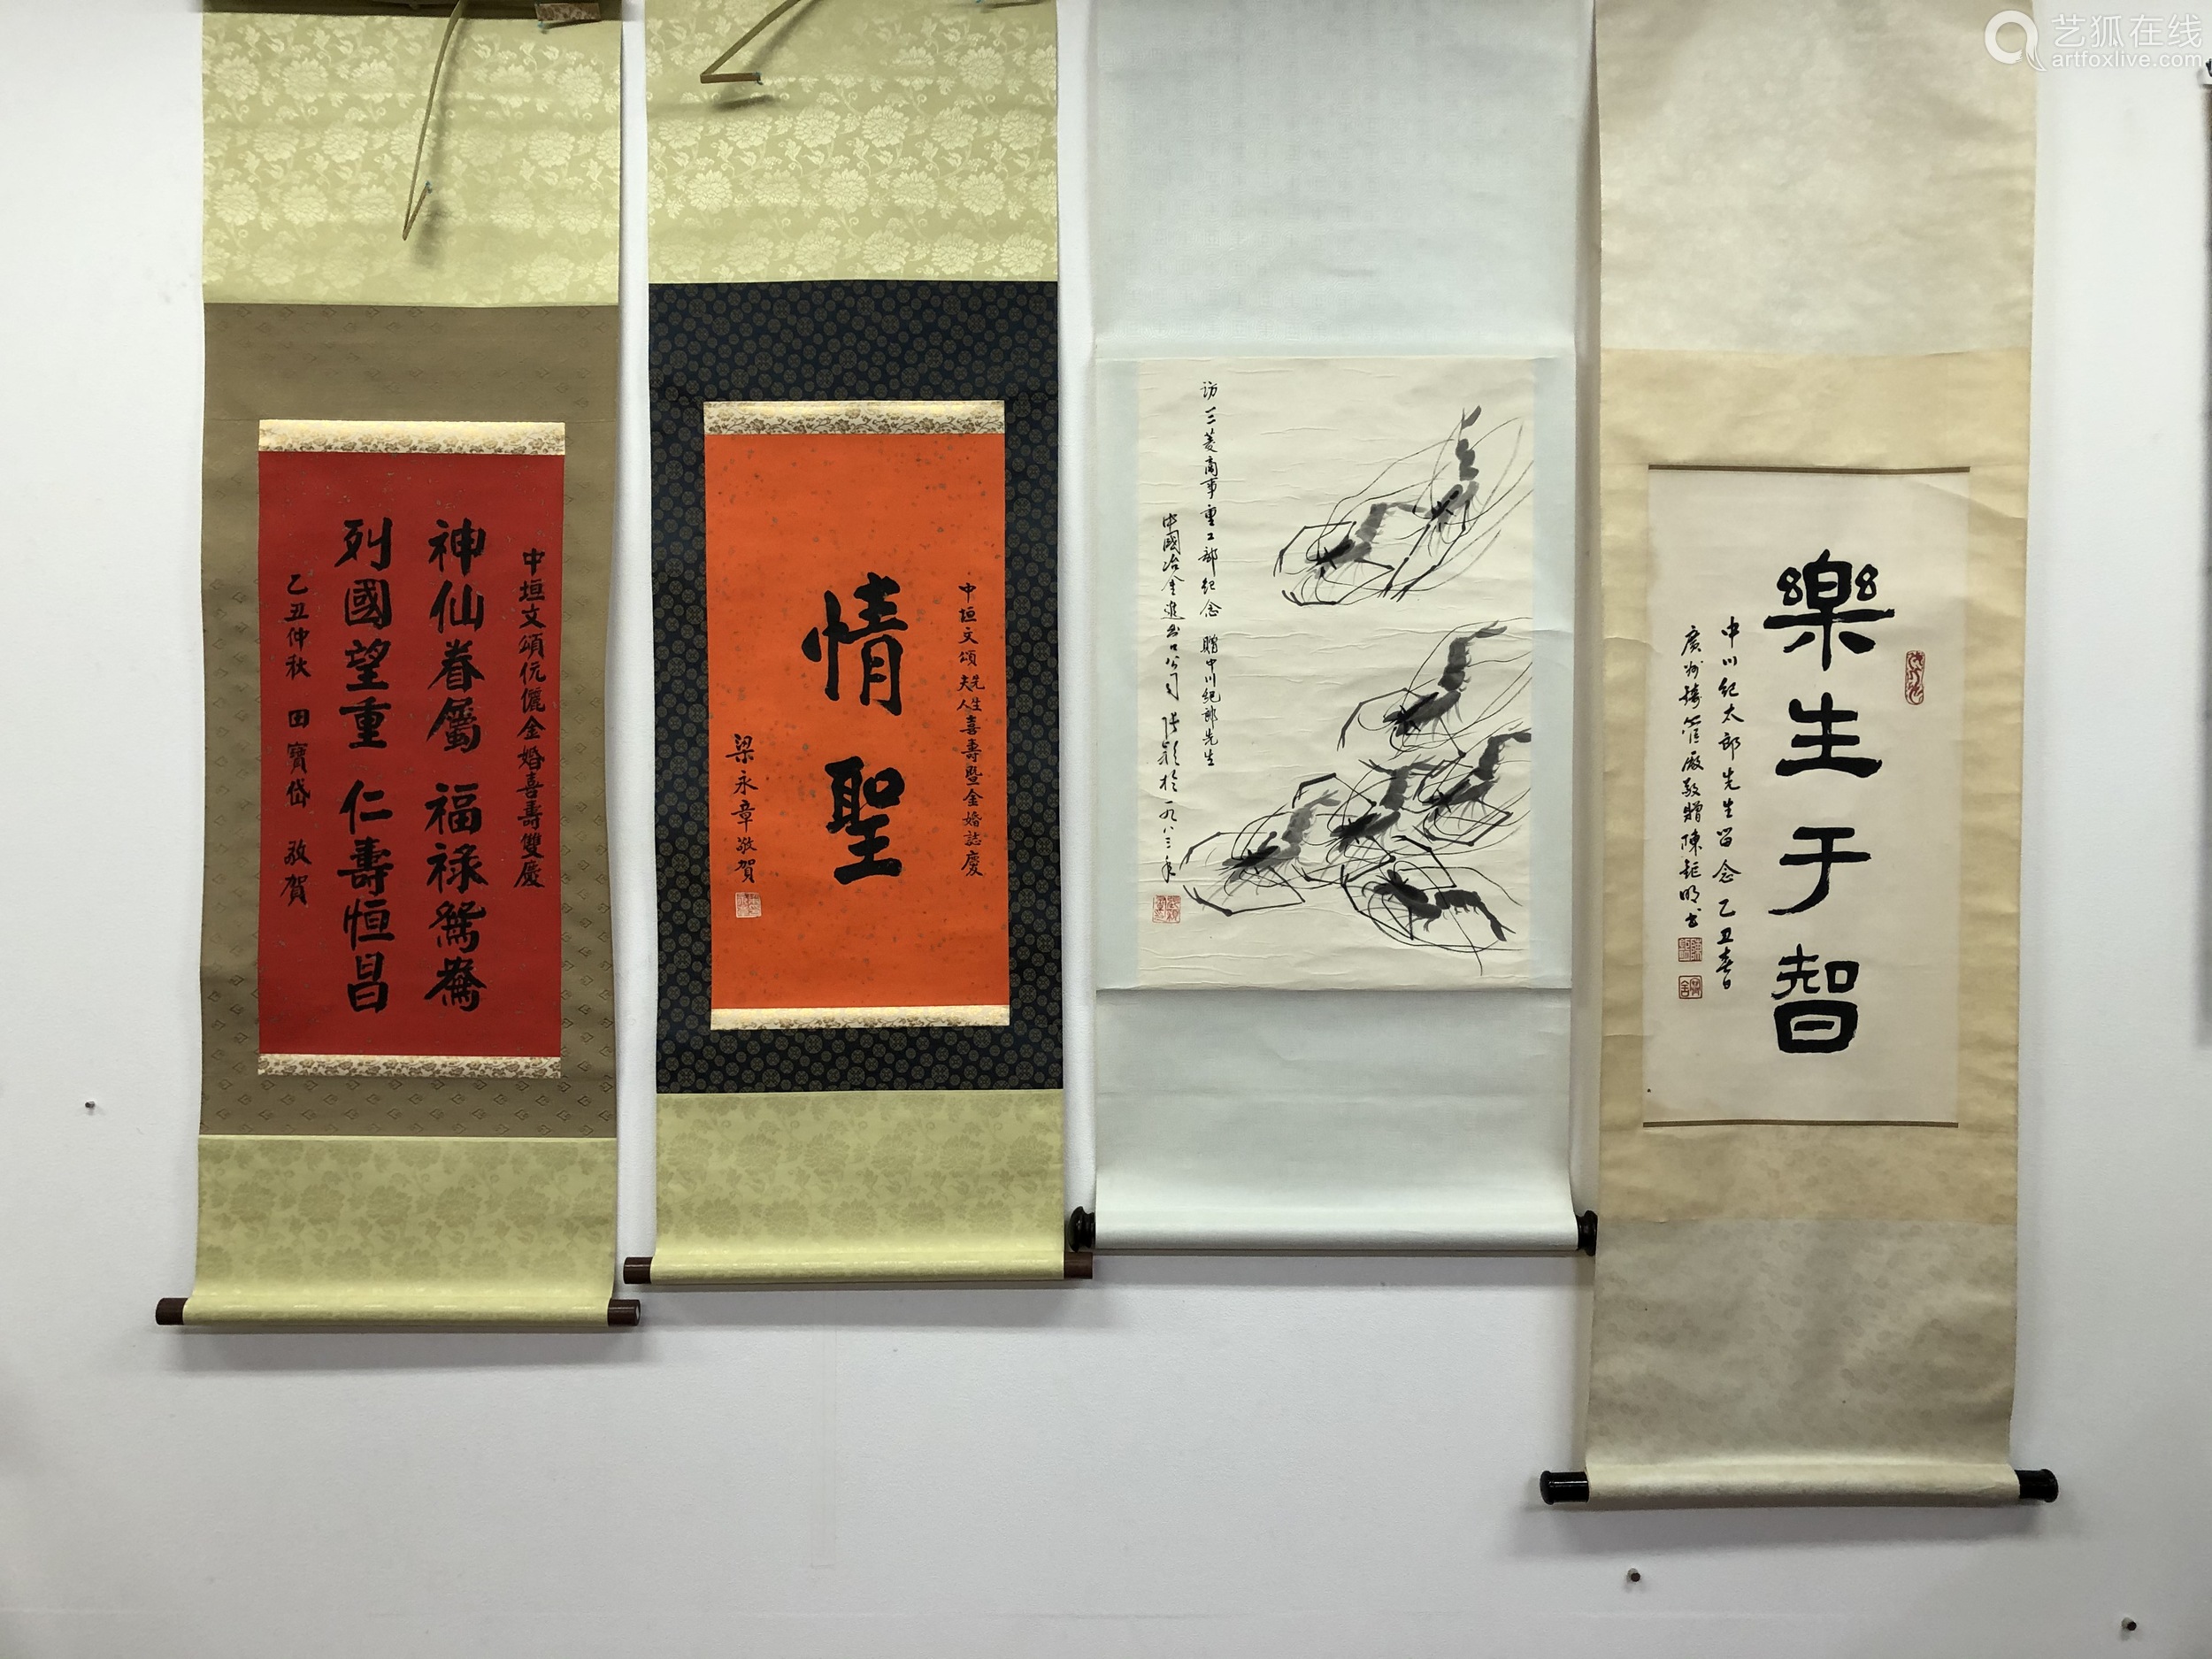 艺狐在线
artfoxlive.com
中垣文頌伉儷金婚喜壽雙慶
神仙眷屬 福祿鴛鴦
列國望重 仁壽恒昌
乙丑仲秋 田寶岱 敬賀
中垣文頌先生夫人喜壽暨金婚誌慶
情聖
梁永章敬賀
访三菱商事重工部纪念 赠中川纪郎先生
中國冶金進出口公司 张颖於一九八三年
樂生于智
中川紀太郎先生留念 乙丑春日
廣州 敬贈 陳鉅明书